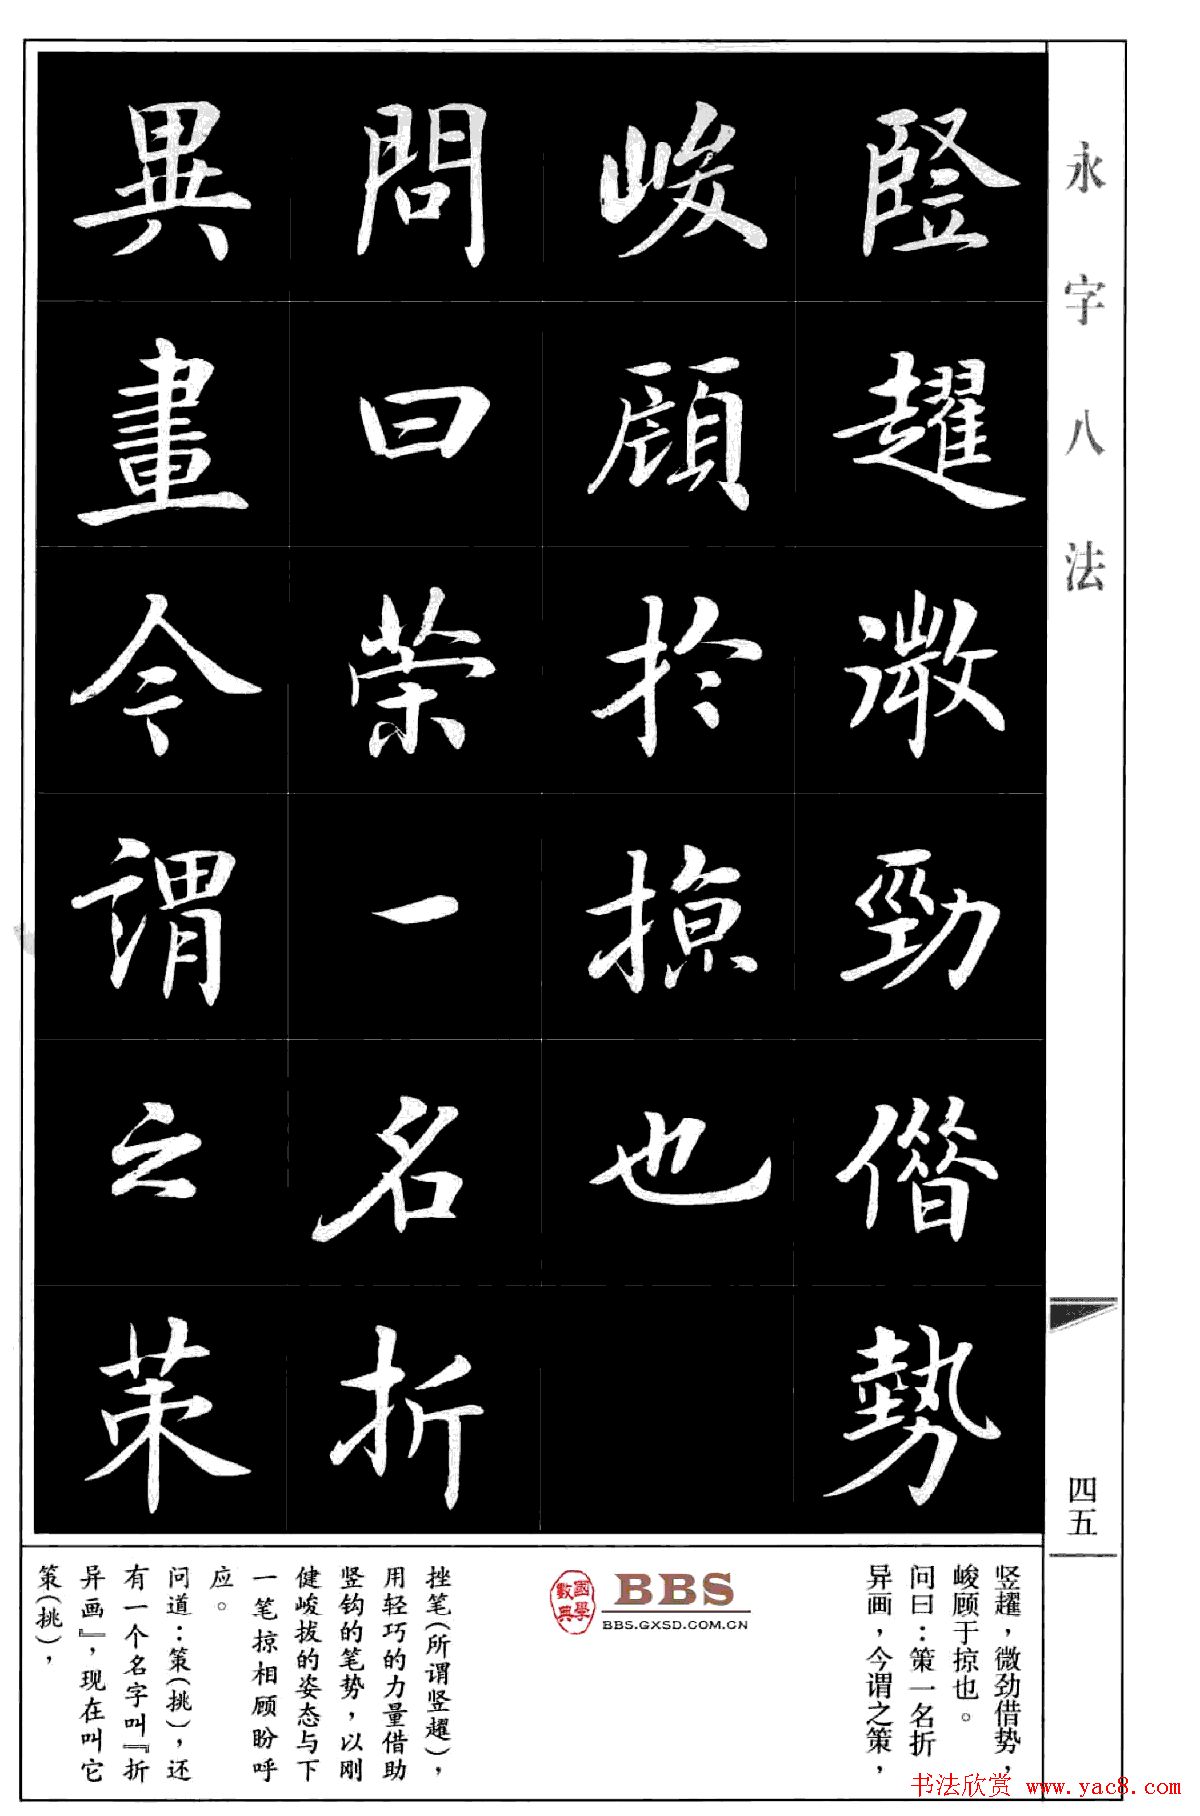 永字八法
四五
竪趯微勁借勢
峻顧於掠也
問曰策一名折
異畫今謂之策
竖趯，微劲借势，
峻顾于掠也。
问曰：策一名折
异画，今谓之策，
國學
數典
BBS
BBS.GXSD.COM.CN
挫笔(所谓竖趯)，
用轻巧的力量借助
竖钩的笔势，以刚
健峻拔的姿态与下
一笔掠相顾盼呼
应。
问道：策(挑)，还
有一个名字叫『折
异画』，现在叫它
策(挑)，
书法欣赏 www.yac8.com